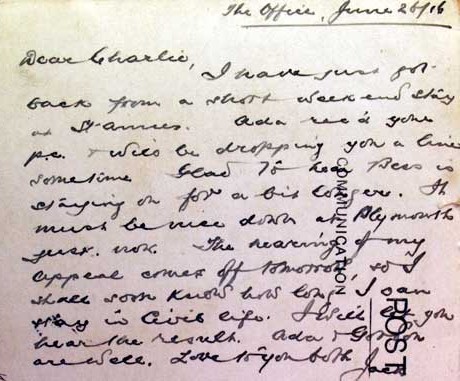 The Office, June 26/16
Dear Charlie,
I have just got
back from a short week end stay
at St Annes. Ada rec'd your
p.c. & will be dropping you a line
sometime Glad to hear Bess is
staying on for a bit longer. It
must be nice down at Plymouth
just now. The hearing of my
appeal comes off tomorrow, so I
shall soon know how long I can
stay in Civil life. I will let you
hear the result. Ada & Gordon
are well. Love to you both
Jack
COMMUNICATION
POST